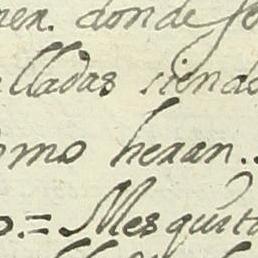 donde
lladas siendo
omo heran.
o.= Mesquita